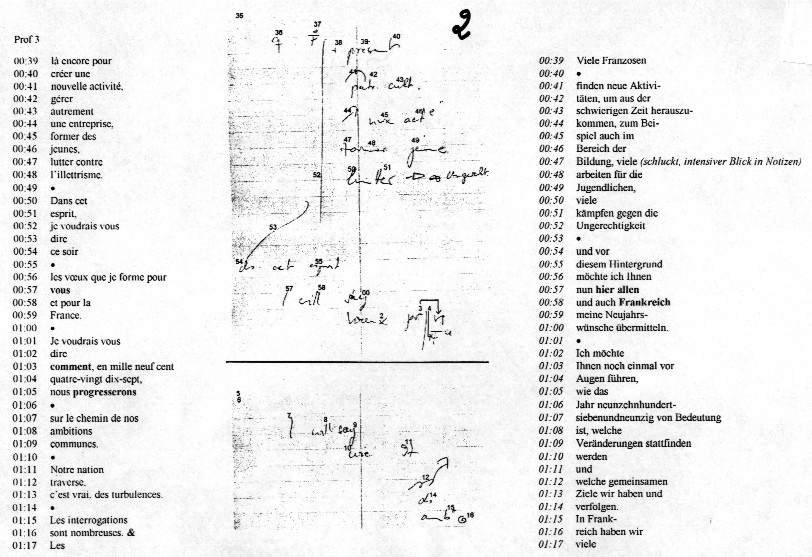 35
2
36
37
Prof 3
38 39 40
+ present
00:39 là encore pour
00:40 créer une
00:41 nouvelle activité,
00:42 gérer
00:43 autrement
00:44 une entreprise,
00:45 former des
00:46 jeunes,
00:47 lutter contre
00:48 l'illettrisme.
00:49 •
00:50 Dans cet
00:51 esprit,
00:52 je voudrais vous
00:53 dire
00:54 ce soir
00:55 •
00:56 les vœux que je forme pour
00:57 vous
00:58 et pour la
00:59 France.
01:00 •
01:01 Je voudrais vous
01:02 dire
01:03 comment, en mille neuf cent
01:04 quatre-vingt dix-sept,
01:05 nous progresserons
01:06 •
01:07 sur le chemin de nos
01:08 ambitions
01:09 communes.
01:10 •
01:11 Notre nation
01:12 traverse,
01:13 c'est vrai, des turbulences.
01:14 •
01:15 Les interrogations
01:16 sont nombreuses. &
01:17 Les
42 43
cult.
44 45
47 48 49
former
50 51
lutter
52
53
54 55
ds cet esprit
57 58 00
will say
2 3 4
vœux pr
5
6
7 8 9
will say
10 11
12
14
ds
15 16
amb
00:39 Viele Franzosen
00:40 •
00:41 finden neue Aktivi-
00:42 täten, um aus der
00:43 schwierigen Zeit herauszu-
00:44 kommen, zum Bei-
00:45 spiel auch im
00:46 Bereich der
00:47 Bildung, viele (schluckt, intensiver Blick in Notizen)
00:48 arbeiten für die
00:49 Jugendlichen,
00:50 viele
00:51 kämpfen gegen die
00:52 Ungerechtigkeit
00:53 •
00:54 und vor
00:55 diesem Hintergrund
00:56 möchte ich Ihnen
00:57 nun hier allen
00:58 und auch Frankreich
00:59 meine Neujahrs-
01:00 wünsche übermitteln.
01:01 •
01:02 Ich möchte
01:03 Ihnen noch einmal vor
01:04 Augen führen,
01:05 wie das
01:06 Jahr neunzehnhundert-
01:07 siebenundneunzig von Bedeutung
01:08 ist, welche
01:09 Veränderungen stattfinden
01:10 werden
01:11 und
01:12 welche gemeinsamen
01:13 Ziele wir haben und
01:14 verfolgen.
01:15 In Frank-
01:16 reich haben wir
01:17 viele